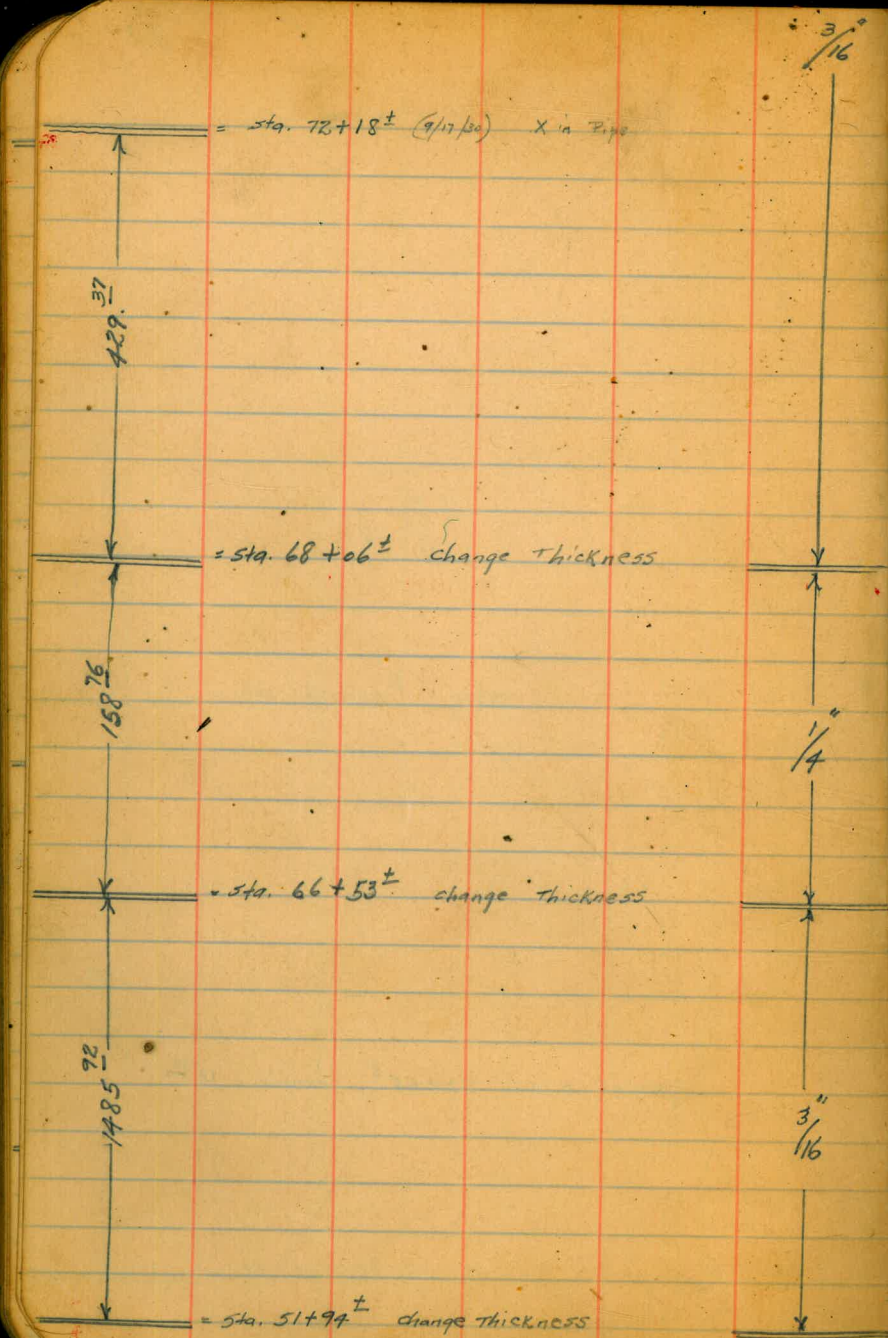 3/16"
= sta. 72+18± (9/17/30) X in Pipe
429.37
= sta. 68+06± change Thickness
158 76
1/4"
= sta. 66+53± change Thickness
1485 92
3/16"
= sta. 51+94± change Thickness